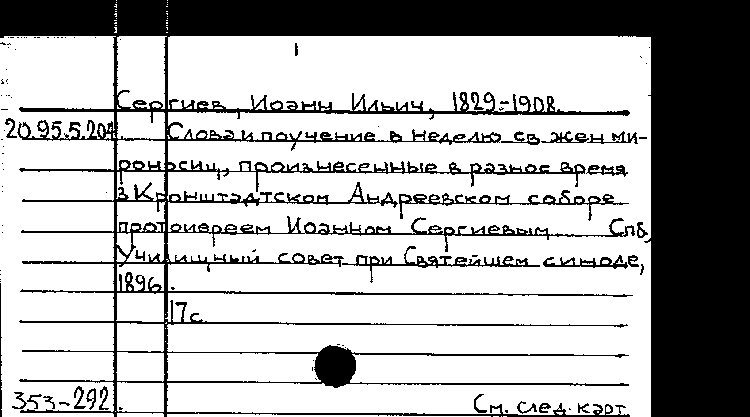 1
Сергиев, Иоанн Ильич, 1829-1908.
20.95.5.204. Слова и поучение в неделю св. жен ми-
роносиц, произнесенные в разное время
в Кронштадтском Андреевском соборе
протоиереем Иоанном Сергиевым. Спб,
Училищный совет при Святейшем синоде,
1896.
17с.
353-292. См. след. карт.